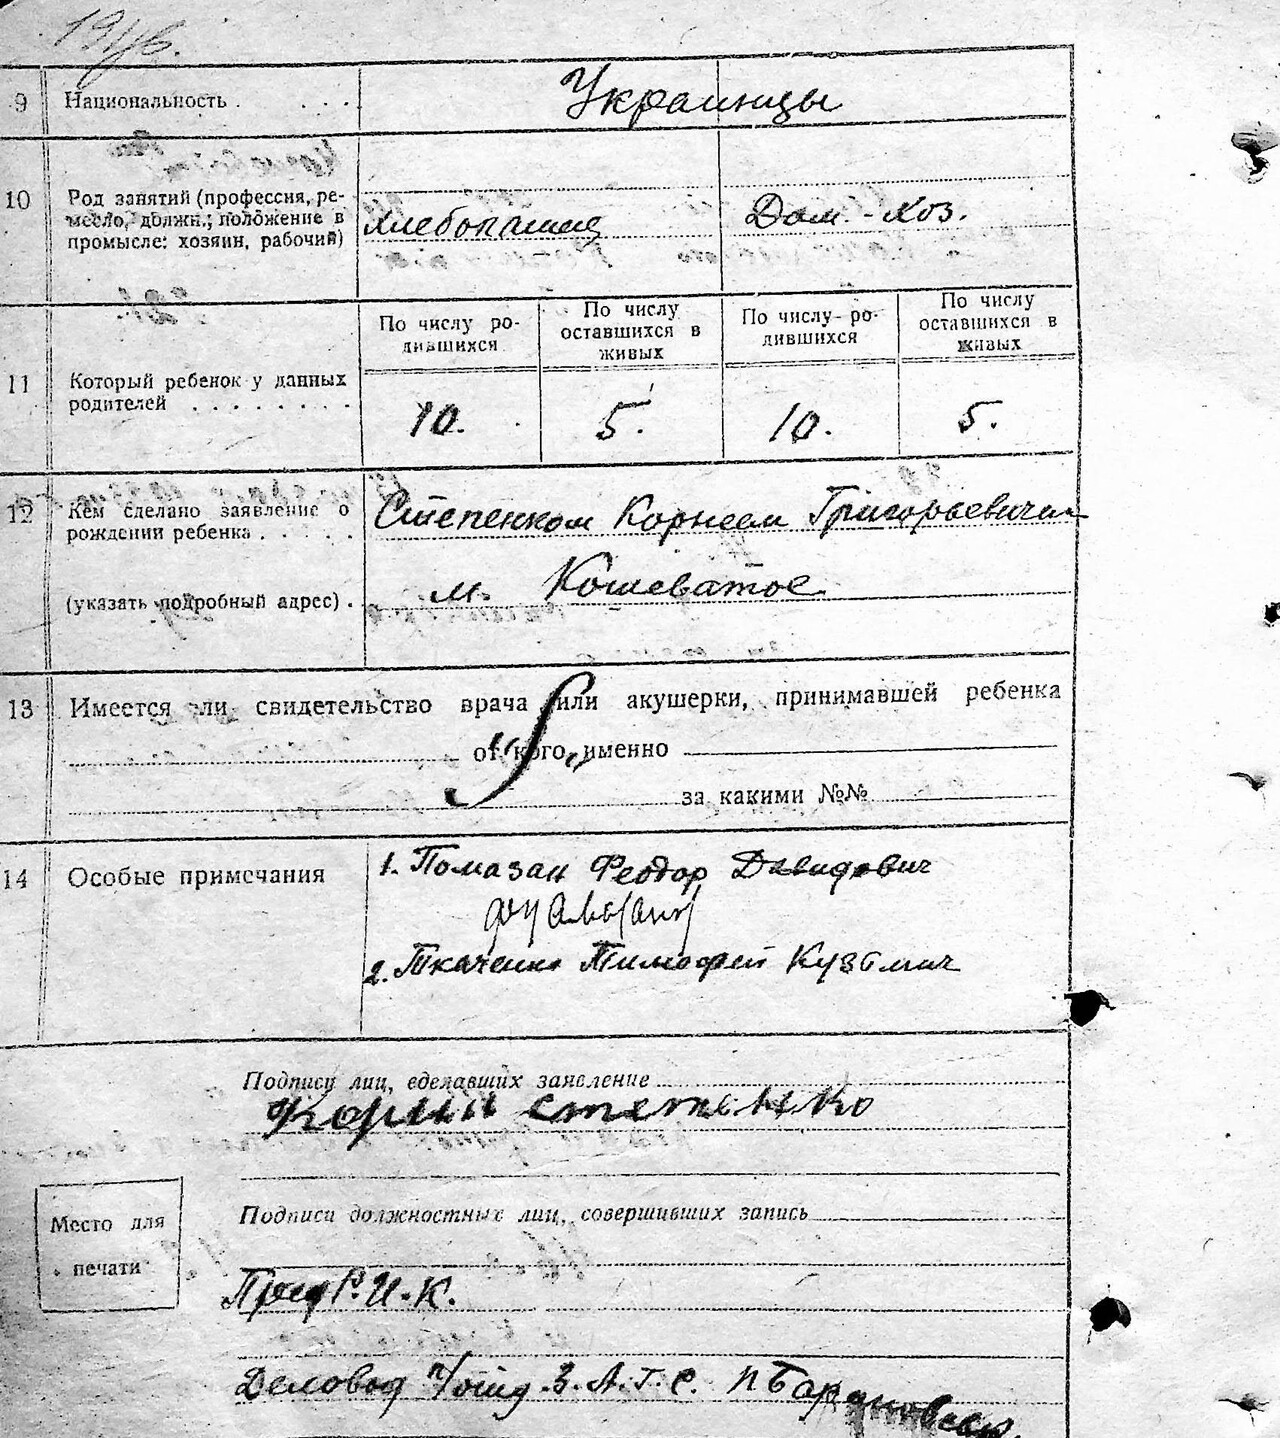 9 Национальность . . . . Украинцы
10 Род занятий (профессия, ре-
месло, должн.; положение в
промысле: хозяин, рабочий)
хлебопашец Дом.-хоз.
11 Который ребенок у данных
родителей . . . . . . . .
По числу ро-
дившихся
По числу
оставшихся в
живых
По числу ро-
дившихся
По числу
оставшихся в
живых
10. 5. 10. 5.
12 Кем сделано заявление о
рождении ребенка . . . . .
(указать подробный адрес) .
Степенком Корнеем Григорьевичем
м. Кошеватое
13 Имеется ли свидетельство врача или акушерки, принимавшей ребенка
от кого именно
за какими №№
14 Особые примечания
1. Помазан Феодор Давидович
2. Ткаченко Тимофей Кузьмич
Подписи лиц, сделавших заявление
Корний степенко
Место для
печати
Подписи должностных лиц, совершивших запись
Пред Р.И.К.
Деловод З.А.Г.С.